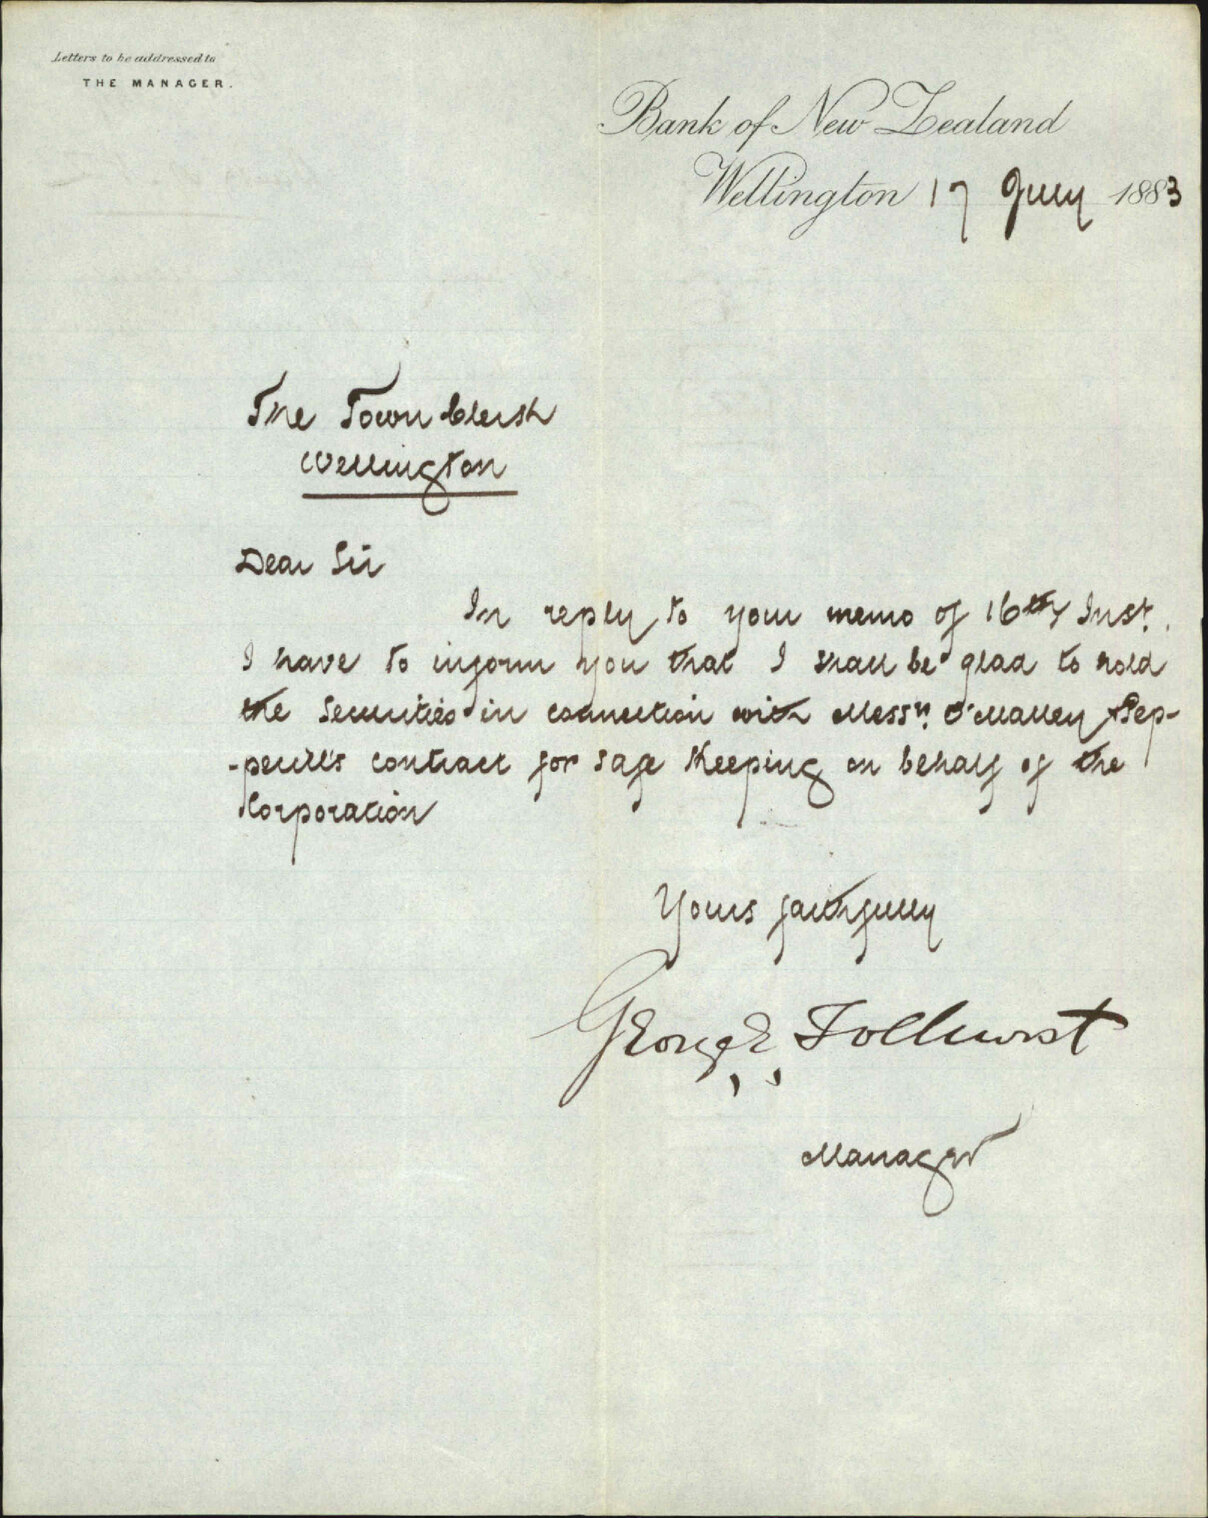 Letters to be addressed to
THE MANAGER.
Bank of New Zealand
Wellington 17 July 1883
The Town Clerk
Wellington
Dear Sir
In reply to your memo of 16th Inst.
I have to inform you that I shall be glad to hold
the Securities in connection with Messrs. O'Malley & Sep-
-peull's contract for safe Keeping on behalf of the
Corporation
Yours faithfully
George Tolhurst
Manager